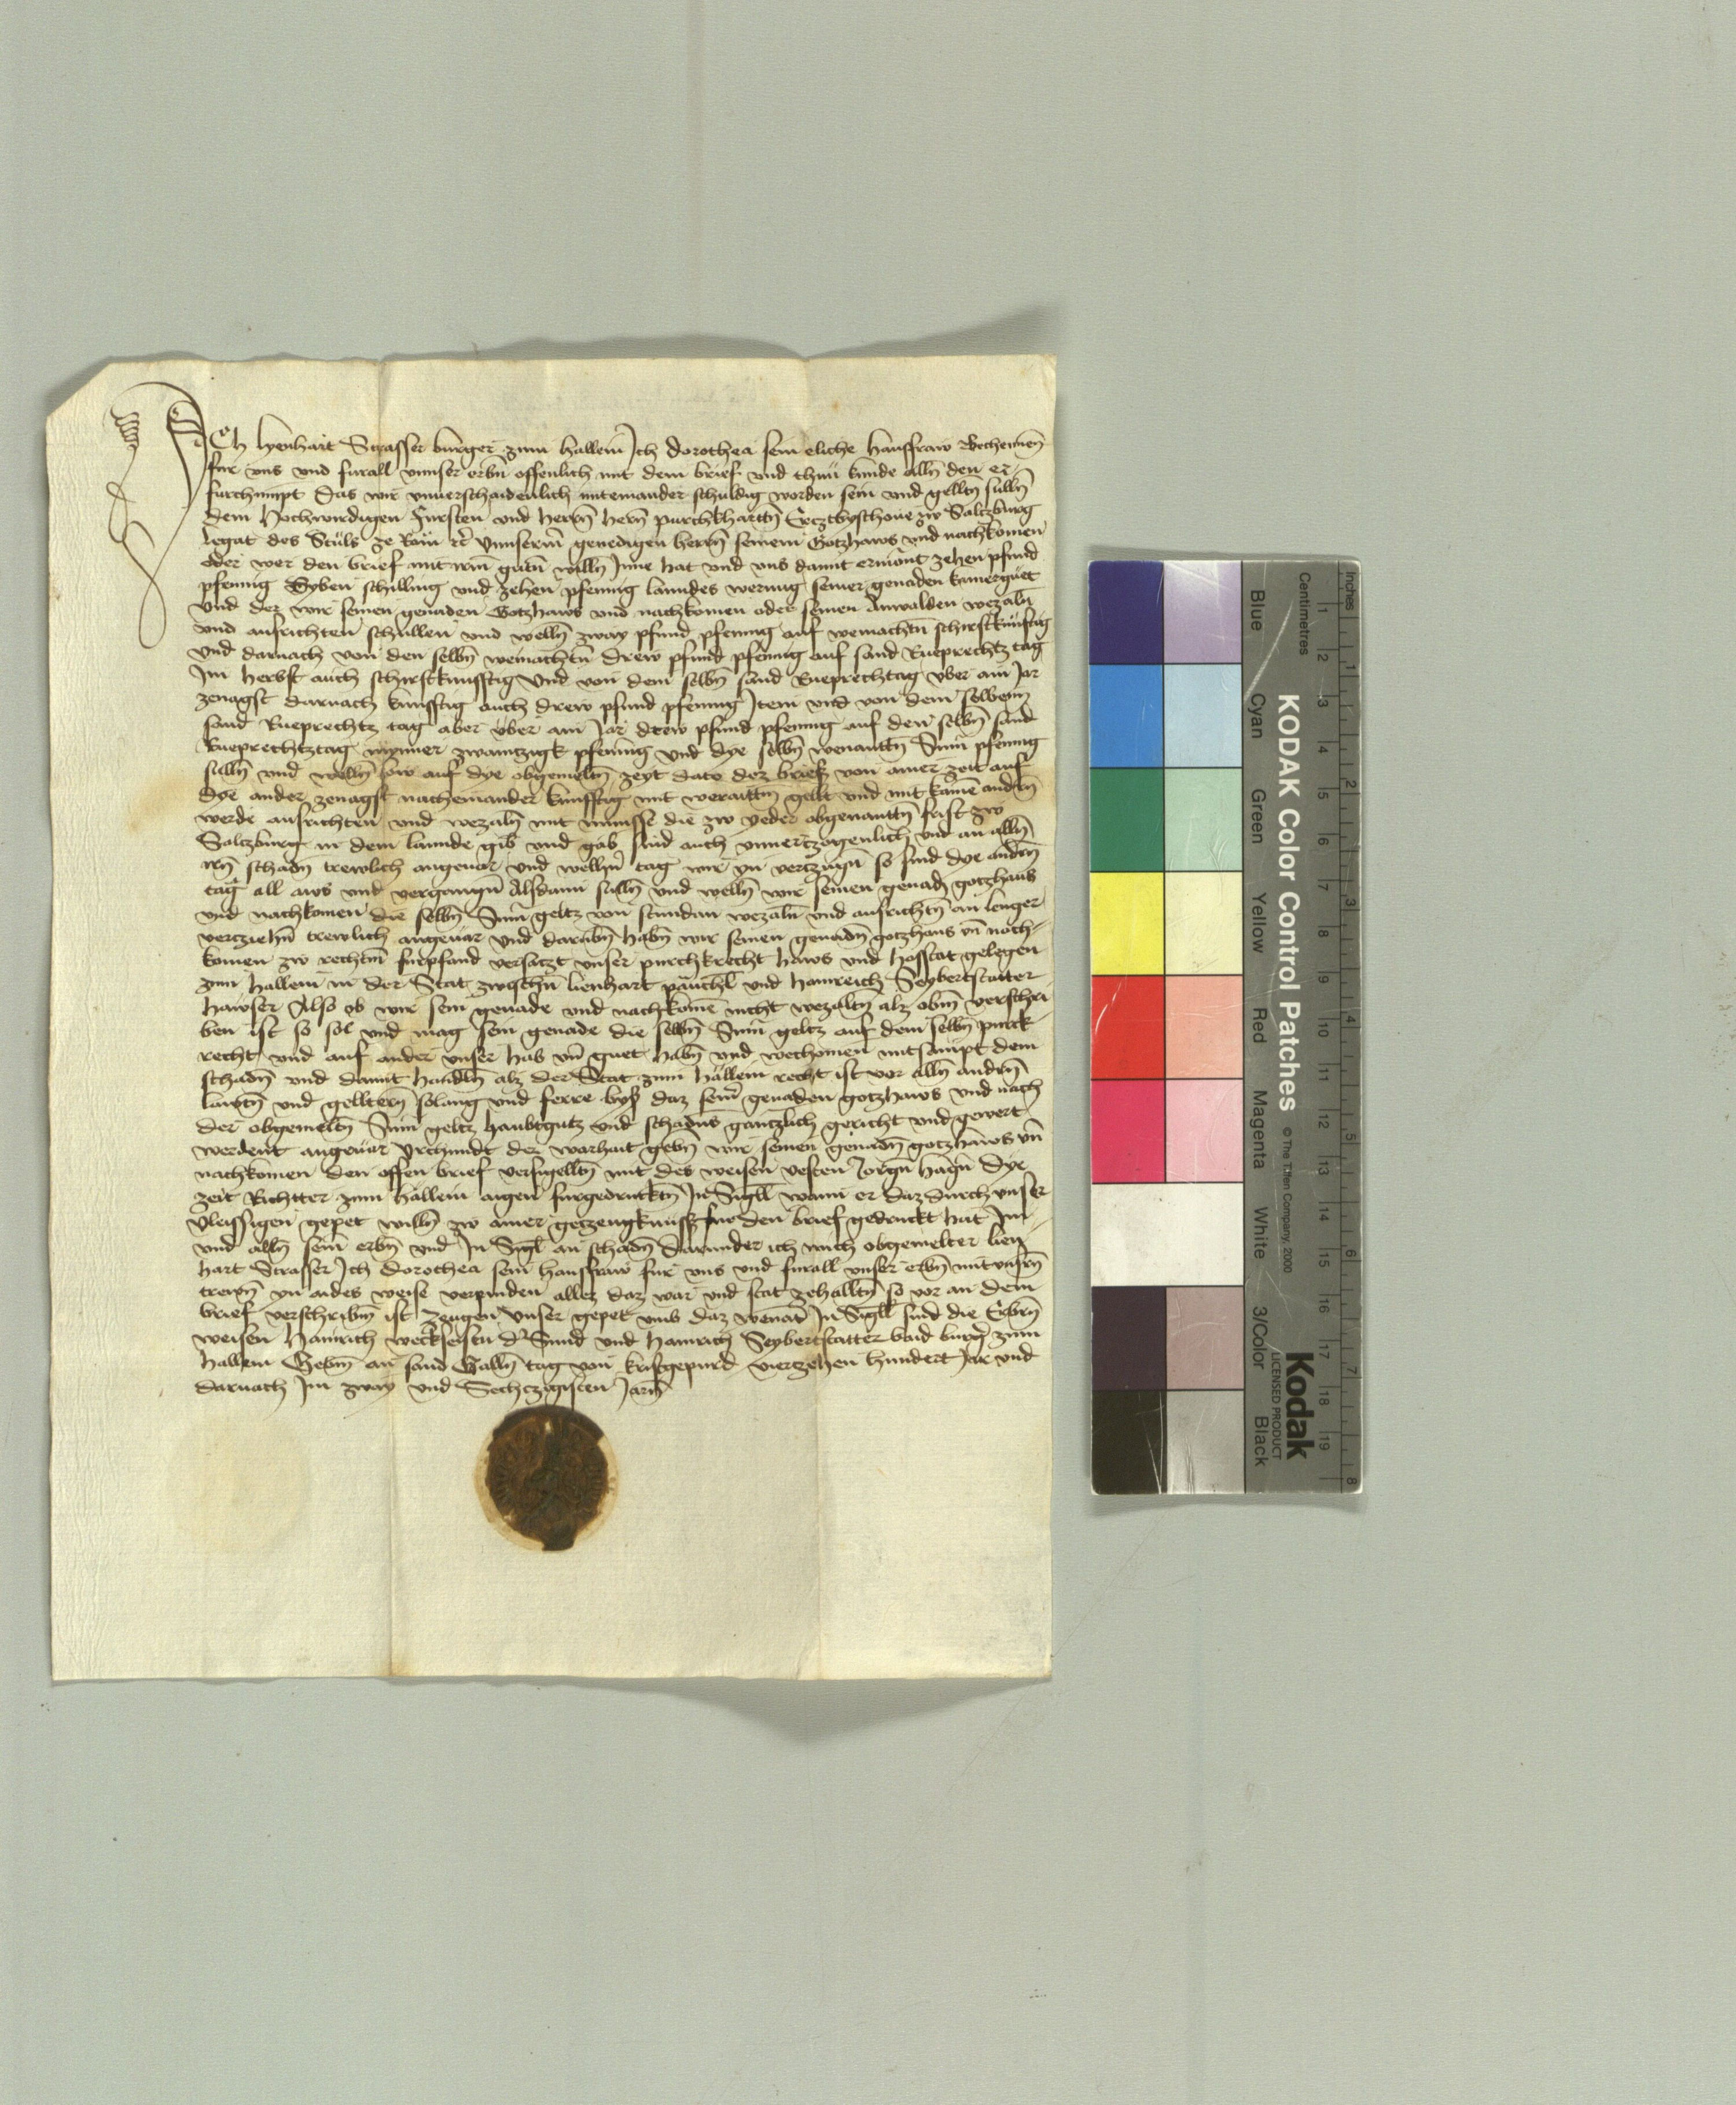 Ich lyenhart Strasser burger zum hallein Ich dorothea sein eliche hausfraw Bechennen
fur uns und furall unnser erbn̄ offenlich mit dem brief und thun kunde alln̄ den er
furchumpt Das wir unuerschaidenlich miteinander schuldig worden sein und gelltn̄ sulln̄
dem Hochwirdigen Fursten und herrn̄ hern̄ purckhartn̄ Ercztbyschoue zw Saltzburg
legat des Stuls ze Rom rc̄ Unnserm̄ genedigen herrn̄ seinem Gotzhaws und nachkomen
oder wer den brief mit irm̄ gutn̄ willn̄ Inne hat und uns damit ermont zehen pfund
pfennig Syben schilling und zehen pfennig lanndes werung seiner genaden kamerguet
Und der wir seinen genaden Gotzhaws und nachkomen oder seinen Anwalden wezaln̄
und ausrichten schullen und welln̄ zway pfund pfennig auf weinachtn̄ schirstkunftig
und darnach von den selbn̄ weinachtn̄ drew pfund pfennig auf sand Rueprechtz tag
Im herbst auch schirstkunfftig Und von dem selbn̄ sand Rueprechtag uber ain Jar
zenagst darnach kunfftig auch drew pfund pfennig Item und von dem selbenn
sand Rueprechtz tag aber uber ain Jar drew pfund pfennig auf den selbn̄ sand
Rueprechtztag mynner zwaintzigk pfennig Und dye selbn̄ wenanttn̄ Sum̄ pfennig
sulln̄ und welln̄ wir auf dye obgemeltn̄ zeyt dato dez briefz von ainer zeit auf
dye ander zenagst nacheinander kunfftig mit weraittn̄ gellt und mit kainē andern̄
werde ausrichten und wezaln̄ mit munsse die zw yeder obgenanttn̄ frist zw
Saltzburg in dem lannde gib und gab sind auch unuerczogenlich und an alln̄
irn̄ schadn̄ trewlich angeuar und welhn̄ tag wir in verczugn̄ so sind dye andern̄
tag all aws und vergangn̄ Alsdann sulln̄ und welln̄ wir seinen genadn̄ gotzhaus
und nachkomen die selbn̄ Sum̄ geltz von stundan wezaln̄ und ausrichtn̄ an lenger
vercziehn̄ trewlich angeuar und darubn̄ habn̄ wir seinen genadn̄ gotzhaus un̄ noch-
komen zw rechtm̄ furpfand versatzt unser purckrecht haws und hofstat gelegen
zum hallein in der Stat zwischn̄ lienhart päuchl und hainreich Seybertstatter
hawser Also ob wir sein genade und nachkomē nicht wezaltn̄ alz obm̄ verschri
ben ist so sol und mag sein genade die selbn̄ Sum̄ geltz auf dem selbn̄ purck
recht und auf ander unser hab un̄ guet habn̄ und wechomen mitsampt dem
schadn̄ und damit handln̄ alz der Stat zum hällein recht ist vor alln̄ andern̄
lawtn̄ und gelltern̄ solang und ferre byß daz seim̄ genaden gotzhaws und nach
der obgemeltn̄ Sum̄ geltz haubtgutz und schadns gantzlich gericht und gewert
werdent angeuar Urchundt der warhait gebn̄ wir seinen genadn̄ gotzhaws un̄
nachkomen den offen brief versigelltn̄ mit des weisen vesten Jorgn̄ hagn̄ Dye
zeit Richtter zum hällein aigen furgedrucktn̄ InSigll wann er daz durch unser
vleissigen gepet willn̄ zw ainer getzeugknussz fur den brief gedruckt hat Im
und alln̄ seim̄ erbn̄ und In Sigl an schadn̄ Darunder ich mich obgemelter lien
hart Strasser Ich dorothea sein hausfraw fur uns und furall unser erbn̄ mit unsern̄
trewn̄ un̄ aides weise verpinden allez daz war und stat zehalltn̄ so vor an dem
brief verschribm̄ ist Zeugen unser gepet umb daz wenat InSigll sind die Erbern̄
weisen Hainrich der Smid und hainrich Seybertstatter baid burger zum
hallein Gebm̄ an sand Galln̄ tag von kristgepurd vierzehen hundert Jar und
darnach Im zway und Sechczigisten Jarn̄
KODAK Color Control Patches © The Tiffen Company, 2000
Kodak
LICENSED PRODUCT
Inches 1 2 3 4 5 6 7 8
Centimetres 1 2 3 4 5 6 7 8 9 10 11 12 13 14 15 16 17 18 19
Blue Cyan Green Yellow Red Magenta White 3/Color Black